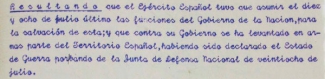 Resultando que el Ejército Español tuvo que asumir el diez
y ocho de Julio último las funciones del Gobierno de la Nacion, para
la salvación de esta; y que contra su Gobierno se ha levantado en ar-
mas parte del Territorio Español, habiendo sido declarado el Estado
de Guerra por bando de la Junta de Defensa Nacional de veintiocho de
julio.